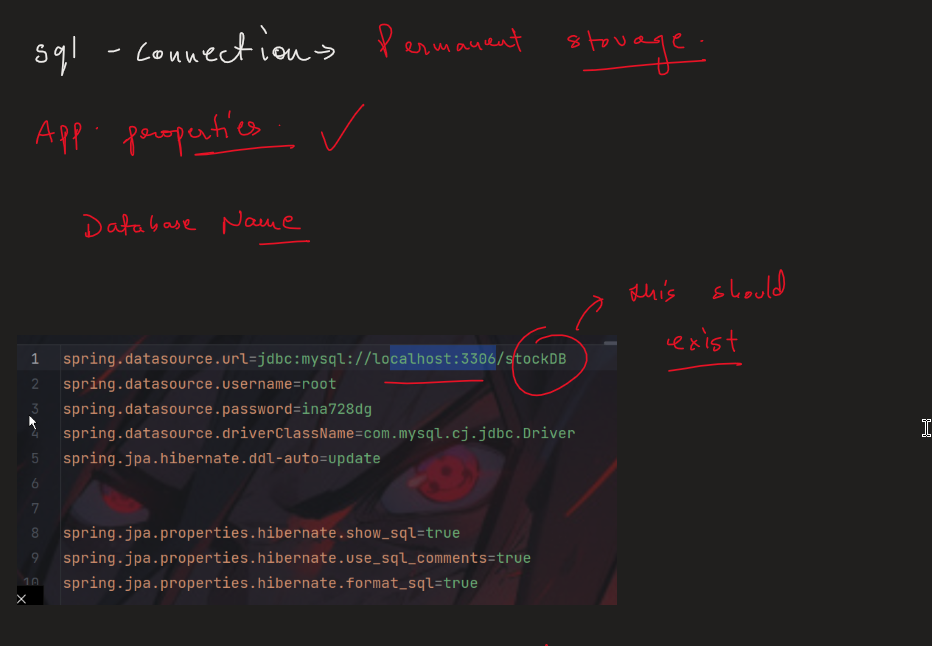 sql - connection → Permanent storage.
App. properties. ✓
Database Name
this should
exist
1 spring.datasource.url=jdbc:mysql://localhost:3306/stockDB
2 spring.datasource.username=root
3 spring.datasource.password=ina728dg
4 spring.datasource.driverClassName=com.mysql.cj.jdbc.Driver
5 spring.jpa.hibernate.ddl-auto=update
6
7
8 spring.jpa.properties.hibernate.show_sql=true
9 spring.jpa.properties.hibernate.use_sql_comments=true
10 spring.jpa.properties.hibernate.format_sql=true